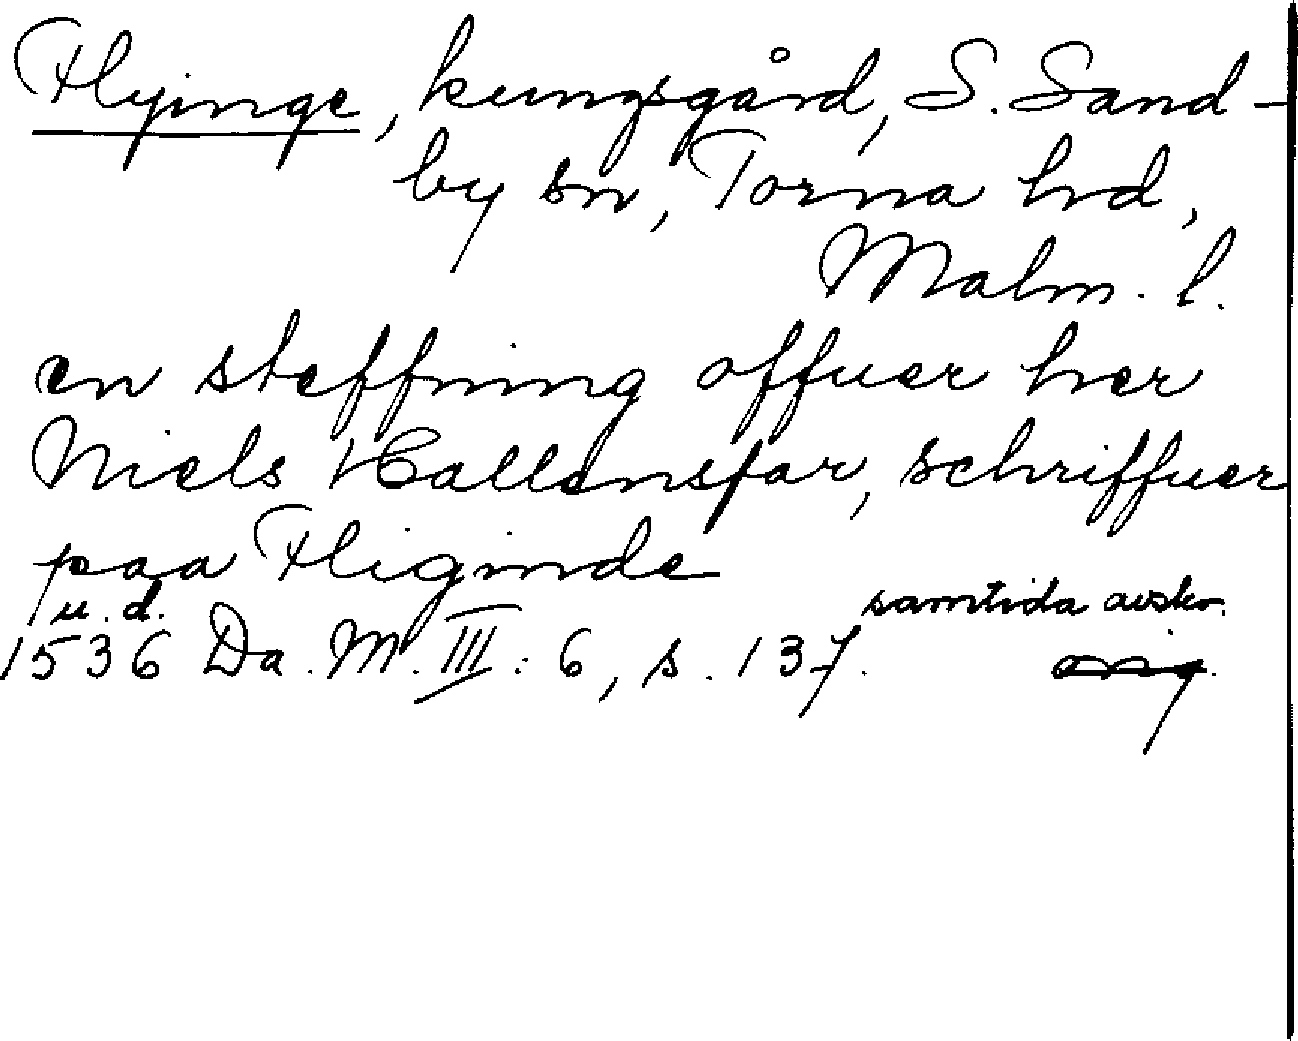 Flyinge, kungsgård, S. Sand-
by sn, Torna hd,
Malm. l.
en steffning offuer her
Niels Hallensfar, schriffuer
paa Fliginde
u. d. samtida avskr.
1536 Da. M. III: 6, s. 137. orig.